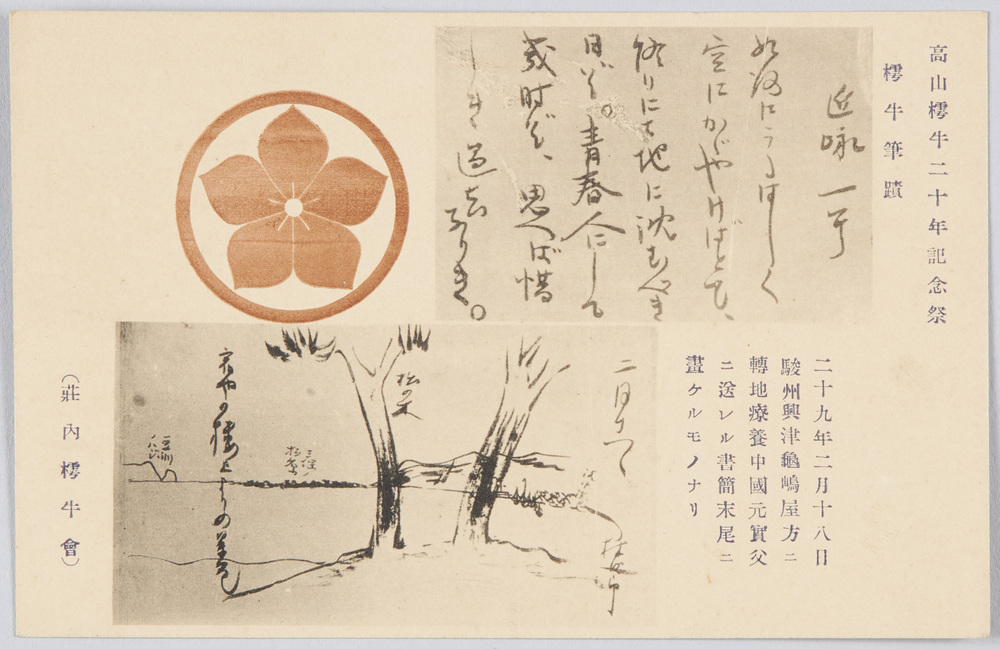 高山樗牛二十年記念祭
樗牛筆蹟
近咏一
如何にうるはしく
空にかゞやけばとて、
終りに地に沈むべき
日ぞ。青春人にして
幾時ぞ、思へば惜
しき過去なりき。
二十九年二月十八日
駿州興津龜嶋屋方ニ
轉地療養中國元實父
ニ送レル書簡末尾ニ
畫ケルモノナリ
二月
松の木
三保ノ
松原
豆州
宿やの樓上よりの景色
(莊内樗牛會)